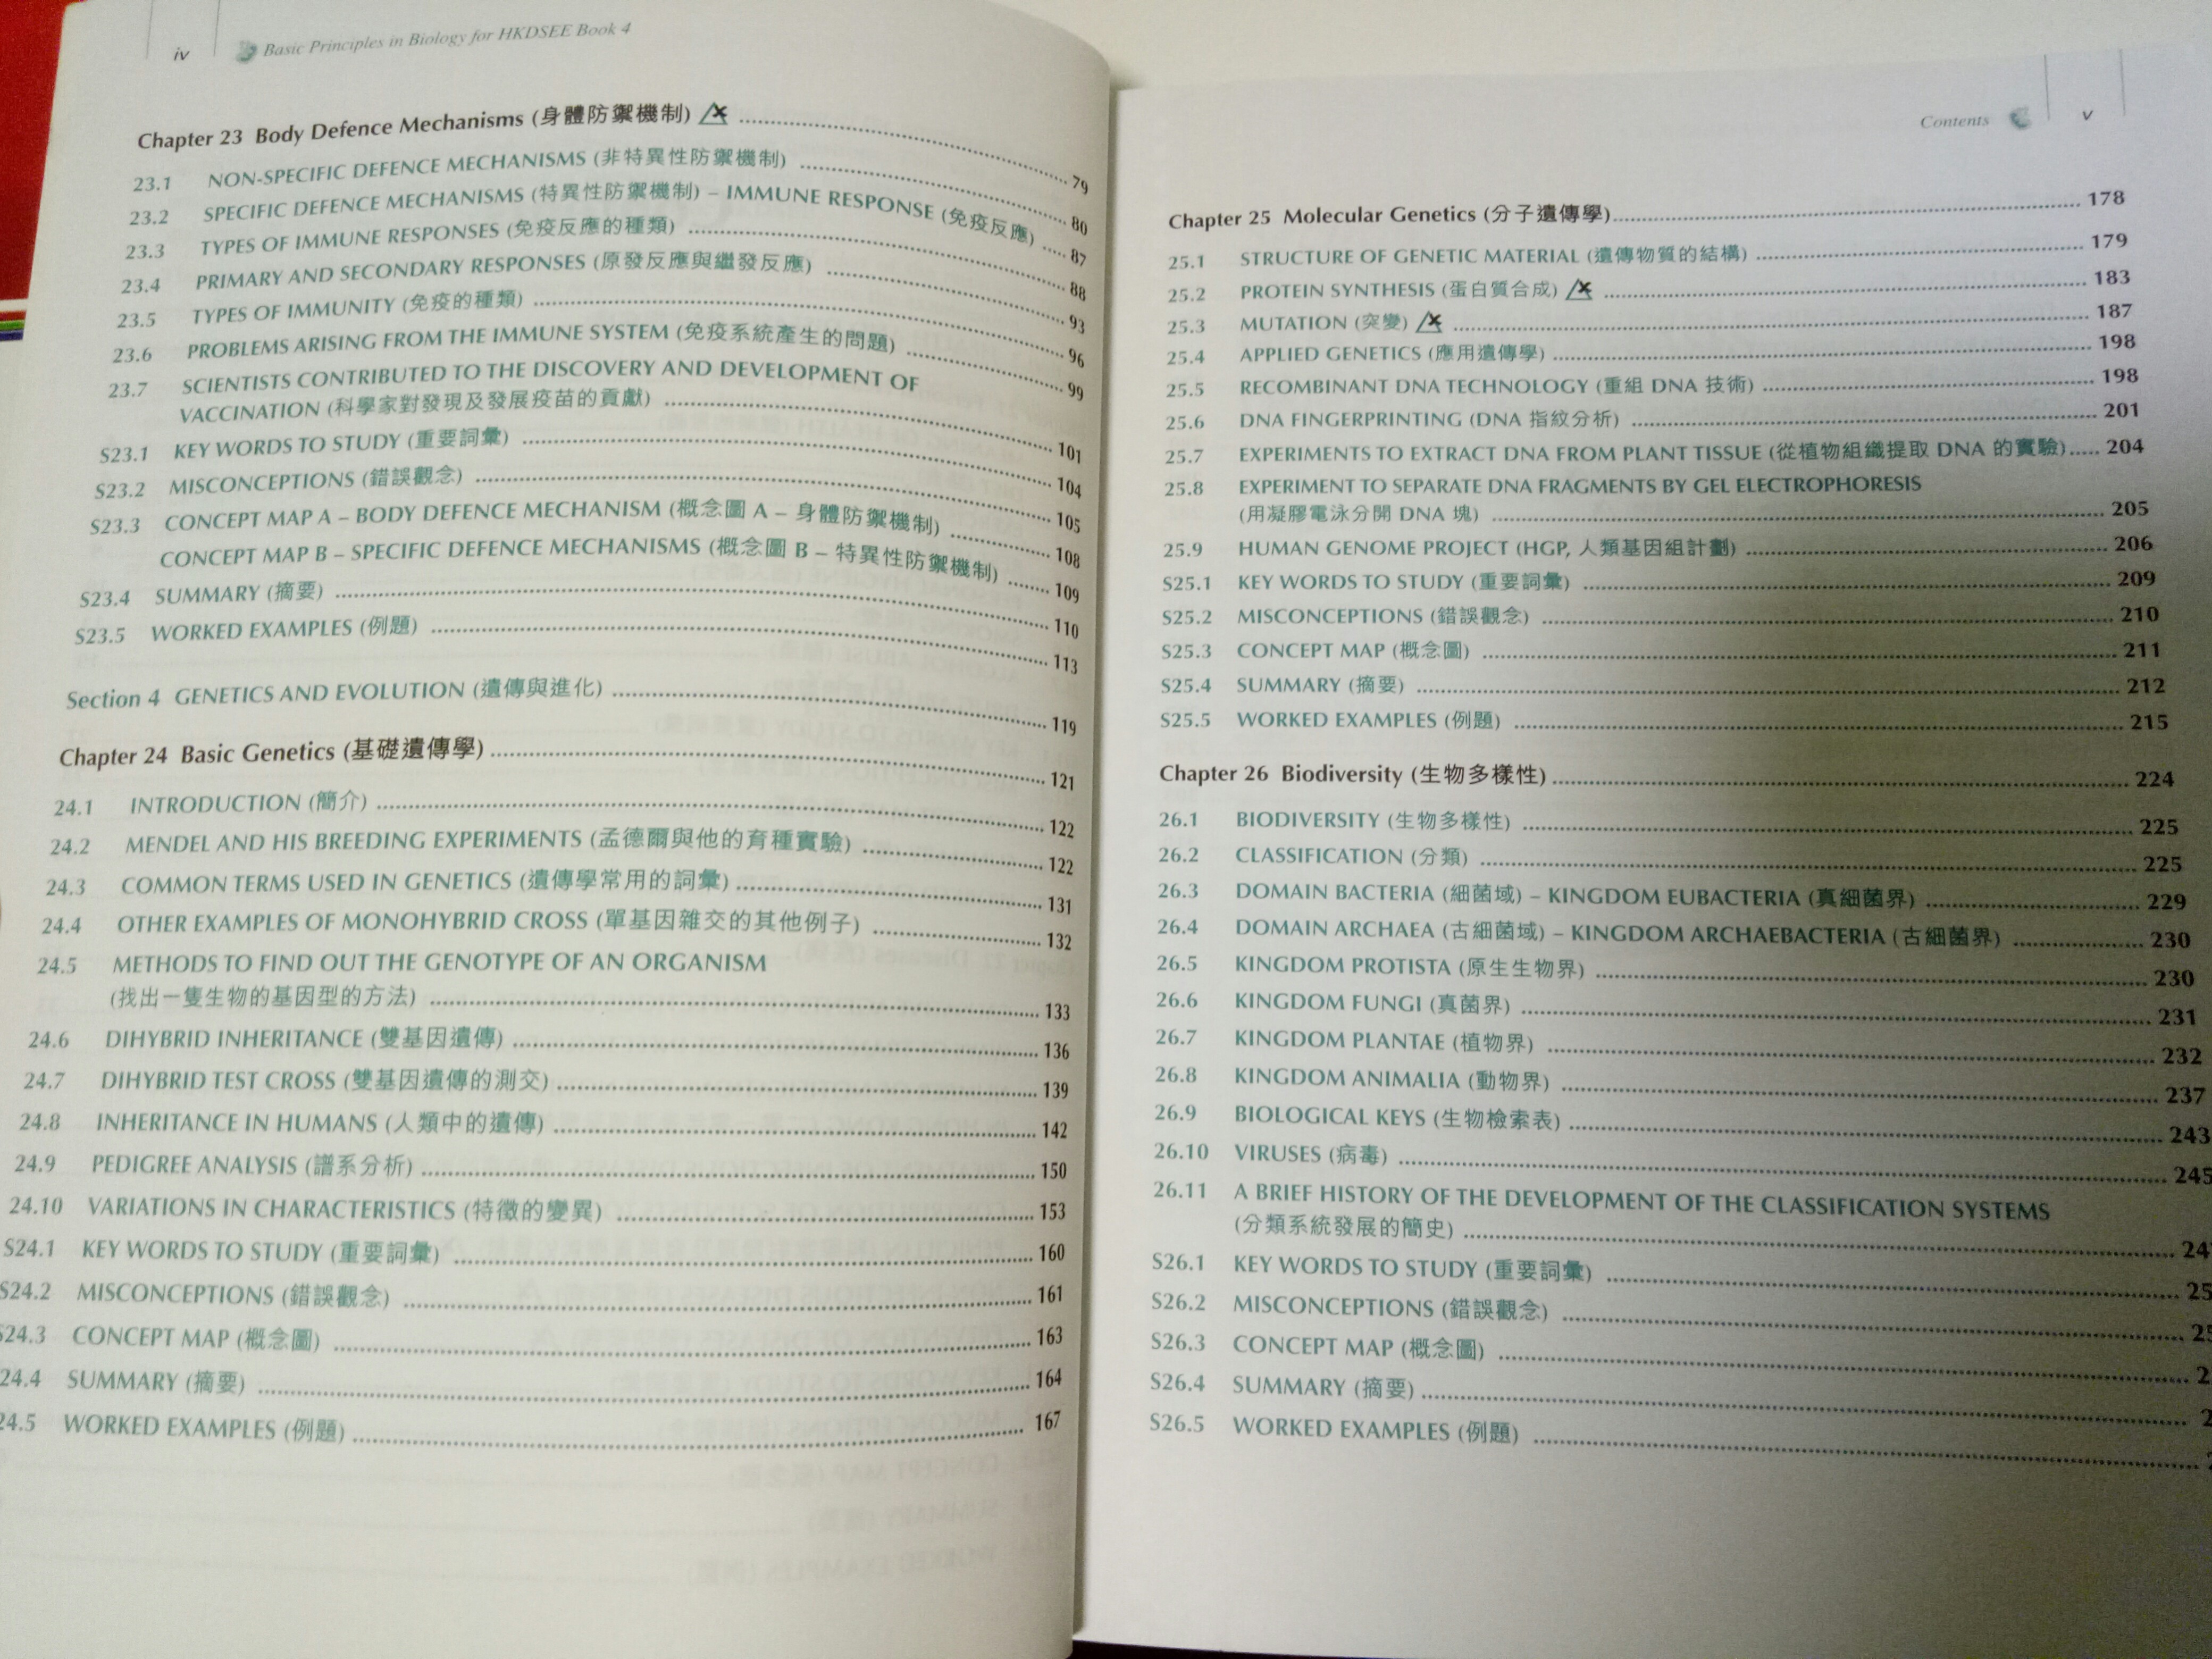 iv Basic Principles in Biology for HKDSEE Book 4
Chapter 23 Body Defence Mechanisms (身體防禦機制) ... 79
23.1 NON-SPECIFIC DEFENCE MECHANISMS (非特異性防禦機制) ... 80
23.2 SPECIFIC DEFENCE MECHANISMS (特異性防禦機制) – IMMUNE RESPONSE (免疫反應) ... 87
23.3 TYPES OF IMMUNE RESPONSES (免疫反應的種類) ... 88
23.4 PRIMARY AND SECONDARY RESPONSES (原發反應與繼發反應) ... 93
23.5 TYPES OF IMMUNITY (免疫的種類) ... 96
23.6 PROBLEMS ARISING FROM THE IMMUNE SYSTEM (免疫系統產生的問題) ... 99
23.7 SCIENTISTS CONTRIBUTED TO THE DISCOVERY AND DEVELOPMENT OF
VACCINATION (科學家對發現及發展疫苗的貢獻) ... 101
S23.1 KEY WORDS TO STUDY (重要詞彙) ... 104
S23.2 MISCONCEPTIONS (錯誤觀念) ... 105
S23.3 CONCEPT MAP A – BODY DEFENCE MECHANISM (概念圖 A – 身體防禦機制) ... 108
CONCEPT MAP B – SPECIFIC DEFENCE MECHANISMS (概念圖 B – 特異性防禦機制) ... 109
S23.4 SUMMARY (摘要) ... 110
S23.5 WORKED EXAMPLES (例題) ... 113
Section 4 GENETICS AND EVOLUTION (遺傳與進化) ... 119
Chapter 24 Basic Genetics (基礎遺傳學) ... 121
24.1 INTRODUCTION (簡介) ... 122
24.2 MENDEL AND HIS BREEDING EXPERIMENTS (孟德爾與他的育種實驗) ... 122
24.3 COMMON TERMS USED IN GENETICS (遺傳學常用的詞彙) ... 131
24.4 OTHER EXAMPLES OF MONOHYBRID CROSS (單基因雜交的其他例子) ... 132
24.5 METHODS TO FIND OUT THE GENOTYPE OF AN ORGANISM
(找出一隻生物的基因型的方法) ... 133
24.6 DIHYBRID INHERITANCE (雙基因遺傳) ... 136
24.7 DIHYBRID TEST CROSS (雙基因遺傳的測交) ... 139
24.8 INHERITANCE IN HUMANS (人類中的遺傳) ... 142
24.9 PEDIGREE ANALYSIS (譜系分析) ... 150
24.10 VARIATIONS IN CHARACTERISTICS (特徵的變異) ... 153
S24.1 KEY WORDS TO STUDY (重要詞彙) ... 160
S24.2 MISCONCEPTIONS (錯誤觀念) ... 161
S24.3 CONCEPT MAP (概念圖) ... 163
24.4 SUMMARY (摘要) ... 164
24.5 WORKED EXAMPLES (例題) ... 167
Contents v
Chapter 25 Molecular Genetics (分子遺傳學) ... 178
25.1 STRUCTURE OF GENETIC MATERIAL (遺傳物質的結構) ... 179
25.2 PROTEIN SYNTHESIS (蛋白質合成) ... 183
25.3 MUTATION (突變) ... 187
25.4 APPLIED GENETICS (應用遺傳學) ... 198
25.5 RECOMBINANT DNA TECHNOLOGY (重組 DNA 技術) ... 198
25.6 DNA FINGERPRINTING (DNA 指紋分析) ... 201
25.7 EXPERIMENTS TO EXTRACT DNA FROM PLANT TISSUE (從植物組織提取 DNA 的實驗) ... 204
25.8 EXPERIMENT TO SEPARATE DNA FRAGMENTS BY GEL ELECTROPHORESIS
(用凝膠電泳分開 DNA 塊) ... 205
25.9 HUMAN GENOME PROJECT (HGP, 人類基因組計劃) ... 206
S25.1 KEY WORDS TO STUDY (重要詞彙) ... 209
S25.2 MISCONCEPTIONS (錯誤觀念) ... 210
S25.3 CONCEPT MAP (概念圖) ... 211
S25.4 SUMMARY (摘要) ... 212
S25.5 WORKED EXAMPLES (例題) ... 215
Chapter 26 Biodiversity (生物多樣性) ... 224
26.1 BIODIVERSITY (生物多樣性) ... 225
26.2 CLASSIFICATION (分類) ... 225
26.3 DOMAIN BACTERIA (細菌域) – KINGDOM EUBACTERIA (真細菌界) ... 229
26.4 DOMAIN ARCHAEA (古細菌域) – KINGDOM ARCHAEBACTERIA (古細菌界) ... 230
26.5 KINGDOM PROTISTA (原生生物界) ... 230
26.6 KINGDOM FUNGI (真菌界) ... 231
26.7 KINGDOM PLANTAE (植物界) ... 232
26.8 KINGDOM ANIMALIA (動物界) ... 237
26.9 BIOLOGICAL KEYS (生物檢索表) ... 243
26.10 VIRUSES (病毒) ... 245
26.11 A BRIEF HISTORY OF THE DEVELOPMENT OF THE CLASSIFICATION SYSTEMS
(分類系統發展的簡史) ...
S26.1 KEY WORDS TO STUDY (重要詞彙) ...
S26.2 MISCONCEPTIONS (錯誤觀念) ...
S26.3 CONCEPT MAP (概念圖) ...
S26.4 SUMMARY (摘要) ...
S26.5 WORKED EXAMPLES (例題) ...